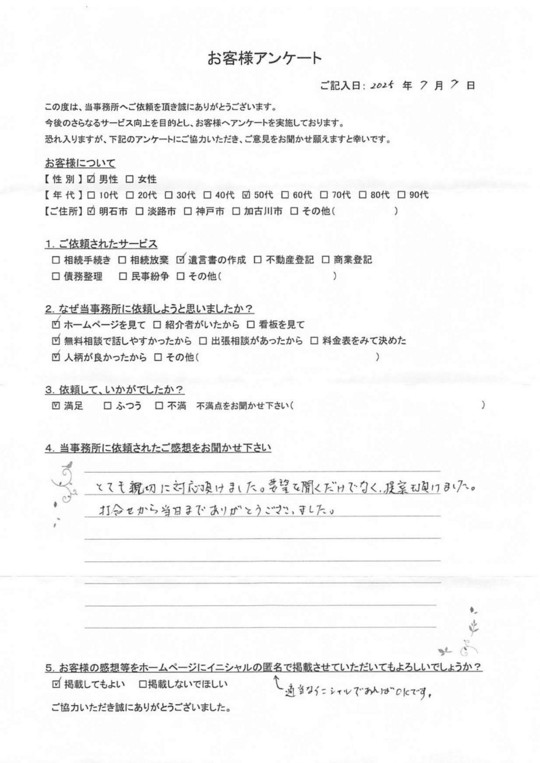 お客様アンケート
ご記入日： 2025 年 7 月 7 日
この度は、当事務所へご依頼を頂き誠にありがとうございます。
今後のさらなるサービス向上を目的とし、お客様へアンケートを実施しております。
恐れ入りますが、下記のアンケートにご協力いただき、ご意見をお聞かせ願えますと幸いです。
お客様について
【 性 別 】☑ 男性 ☐ 女性
【 年 代 】☐ 10代 ☐ 20代 ☐ 30代 ☐ 40代 ☑ 50代 ☐ 60代 ☐ 70代 ☐ 80代 ☐ 90代
【ご住所】☑ 明石市 ☐ 淡路市 ☐ 神戸市 ☐ 加古川市 ☐ その他( )
1．ご依頼されたサービス
☐ 相続手続き ☐ 相続放棄 ☑ 遺言書の作成 ☐ 不動産登記 ☐ 商業登記
☐ 債務整理 ☐ 民事紛争 ☐ その他( )
2．なぜ当事務所に依頼しようと思いましたか？
☑ ホームページを見て ☐ 紹介者がいたから ☐ 看板を見て
☑ 無料相談で話しやすかったから ☐ 出張相談があったから ☐ 料金表をみて決めた
☑ 人柄が良かったから ☐ その他( )
3．依頼して、いかがでしたか？
☑ 満足 ☐ ふつう ☐ 不満 不満点をお聞かせ下さい( )
4．当事務所に依頼されたご感想をお聞かせ下さい
とても親切に対応頂けました。希望を聞くだけでなく、提案も頂けました。
打合せから当日までありがとうございました。
5．お客様の感想等をホームページにイニシャルの匿名で掲載させていただいてもよろしいでしょうか？
☑ 掲載してもよい ☐掲載しないでほしい
適当なイニシャルであればOKです。
ご協力いただき誠にありがとうございました。